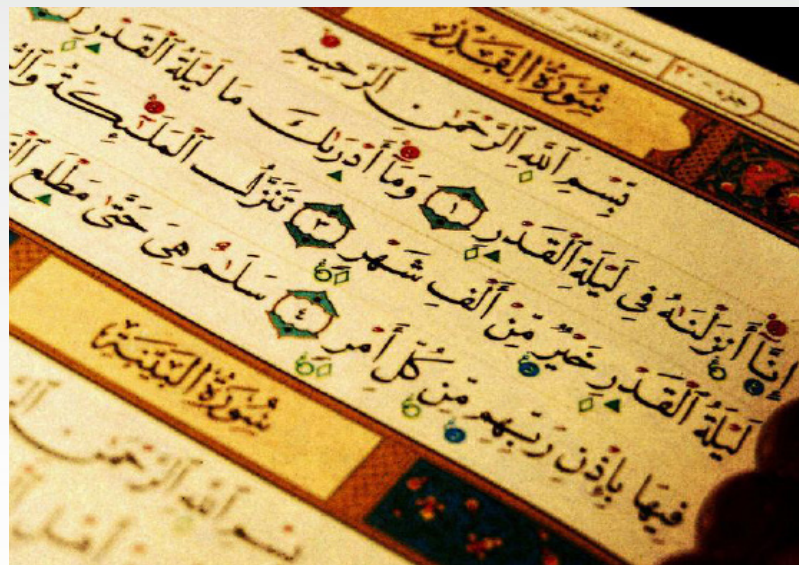 جزء - ٣٠ سورة القدر
سُورَةُ القَدْرِ
بِسْمِ ٱللَّهِ ٱلرَّحْمَٰنِ ٱلرَّحِيمِ
إِنَّآ أَنزَلْنَٰهُ فِي لَيْلَةِ ٱلْقَدْرِ ١ وَمَآ أَدْرَىٰكَ مَا لَيْلَةُ ٱلْقَدْرِ
لَيْلَةُ ٱلْقَدْرِ خَيْرٌ مِّنْ أَلْفِ شَهْرٍ ٣ تَنَزَّلُ ٱلْمَلَٰٓئِكَةُ
فِيهَا بِإِذْنِ رَبِّهِم مِّن كُلِّ أَمْرٍ ٤ سَلَٰمٌ هِيَ حَتَّىٰ مَطْلَعِ
سُورَةُ البَيِّنَةِ
بِسْمِ ٱللَّهِ ٱلرَّحْمَٰنِ